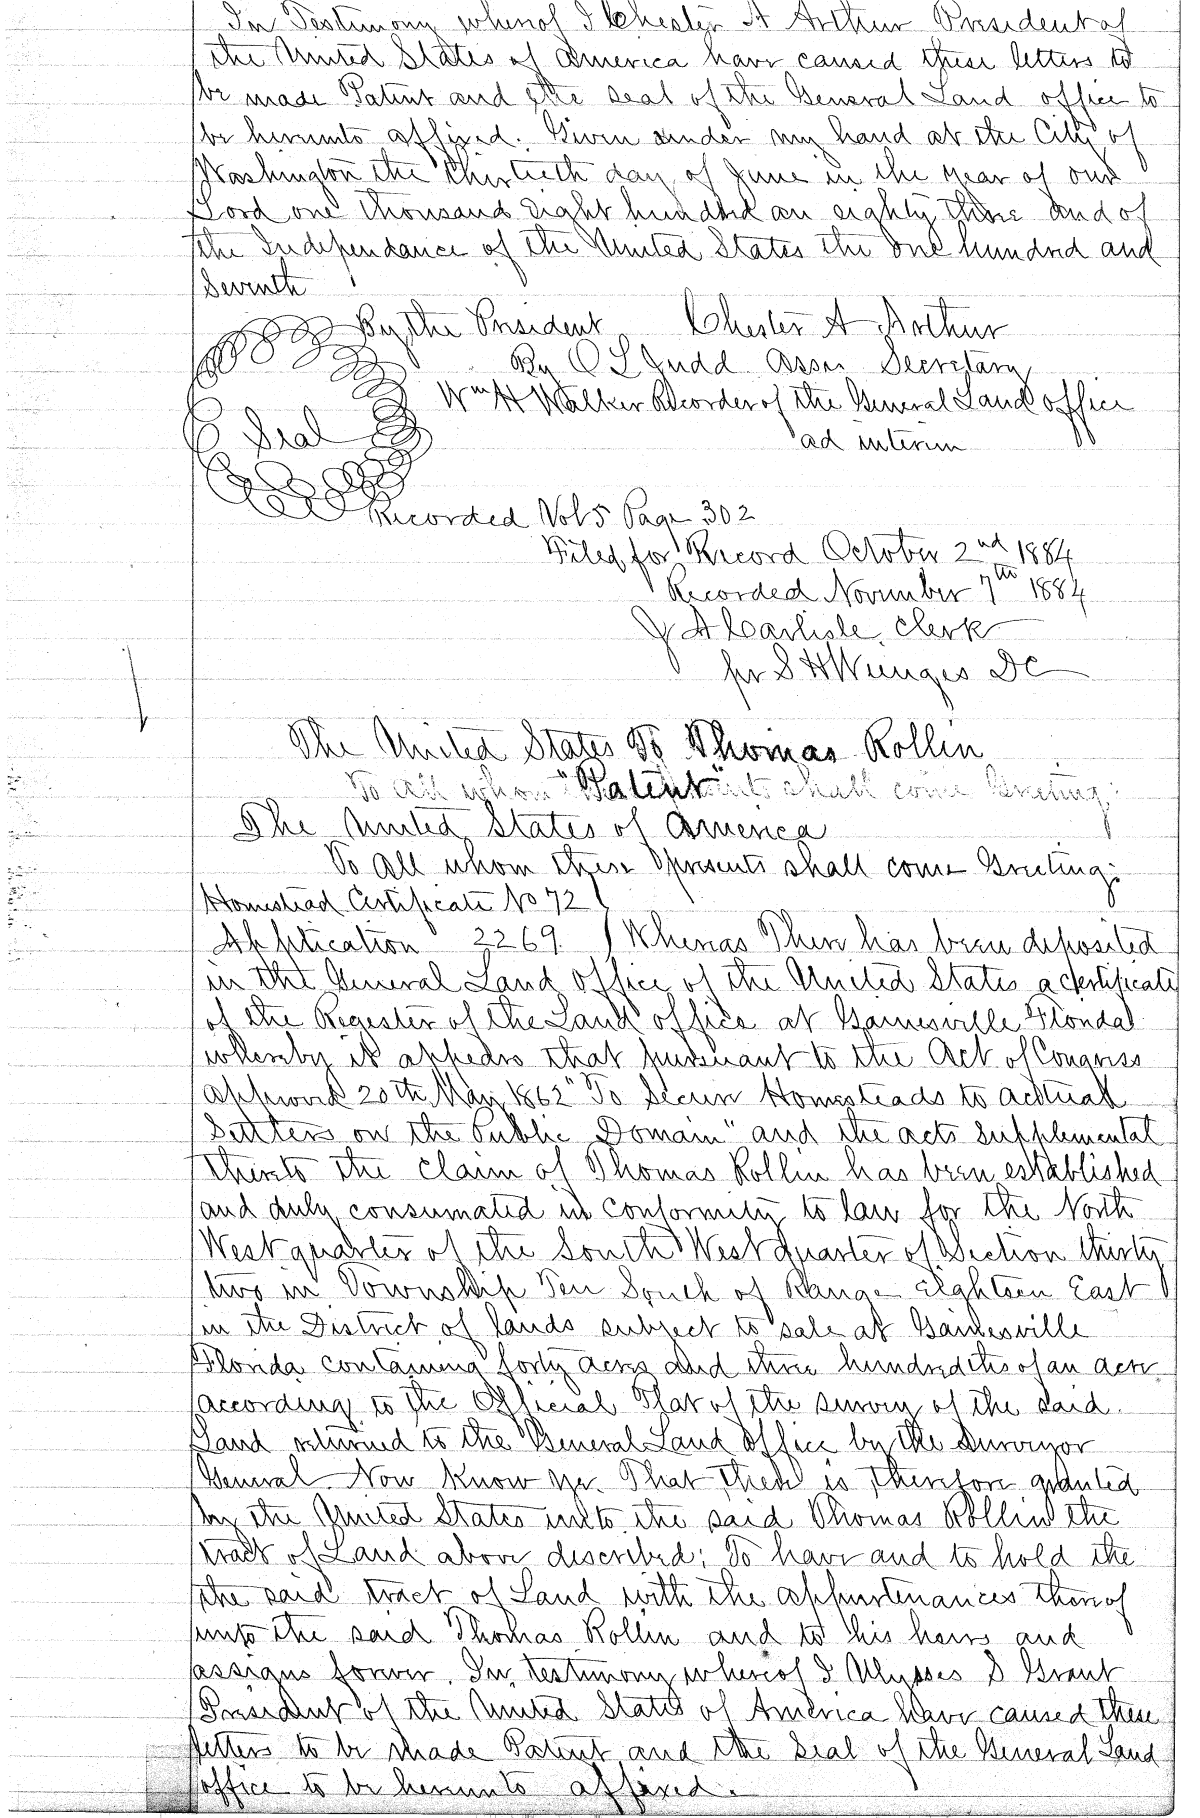 In Testimony whereof I Chester A Arthur President of
the United States of America have caused these letters to
be made Patent and the seal of the General Land office to
be hereunto affixed. Given under my hand at the City of
Washington the thirtieth day of June in the year of our
Lord one thousand eight hundred an eighty three and of
the Independance of the United States the one hundred and
seventh
By the President Chester A Arthur
By O L Judd Asss Secretary
Wm H Walker Recorder of the General Land office
Seal ad interim
Recorded Vol 5 Page 302
Filed for Record October 2nd 1884
Recorded November 7th 1884
J A Carlisle Clerk
pr S H Wienges DC
The United States To Thomas Rollin
To all whom "Patent" shall come Greeting:
The United States of America
To All whom these presents shall come Greeting:
Homestead Certificate No 72
Application 2269 Whereas There has been deposited
in the General Land Office of the United States a certificate
of the Register of the Land office at Gainesville Florida
whereby it appears that pursuant to the Act of Congress
approved 20th May 1862 "To Secure Homesteads to actual
Settlers on the Public Domain" and the acts supplemental
thereto the claim of Thomas Rollin has been established
and duly consumated in conformity to law for the North
West quarter of the South West quarter of Section thirty
two in Township Ten South of Range Eighteen East
in the District of lands subject to sale at Gainesville
Florida containing forty acres and three hundredths of an acre
according to the Official Plat of the survey of the said
Land returned to the General Land office by the Surveyor
General Now Know ye That there is therefore granted
by the United States unto the said Thomas Rollin the
tract of Land above described; To have and to hold the
the said tract of Land with the appurtenances thereof
unto the said Thomas Rollin and to his heirs and
assigns forever. In testimony whereof I Ulysses S Grant
President of the United States of America have caused these
letters to be made Patent and the seal of the General Land
office to be hereunto affixed.